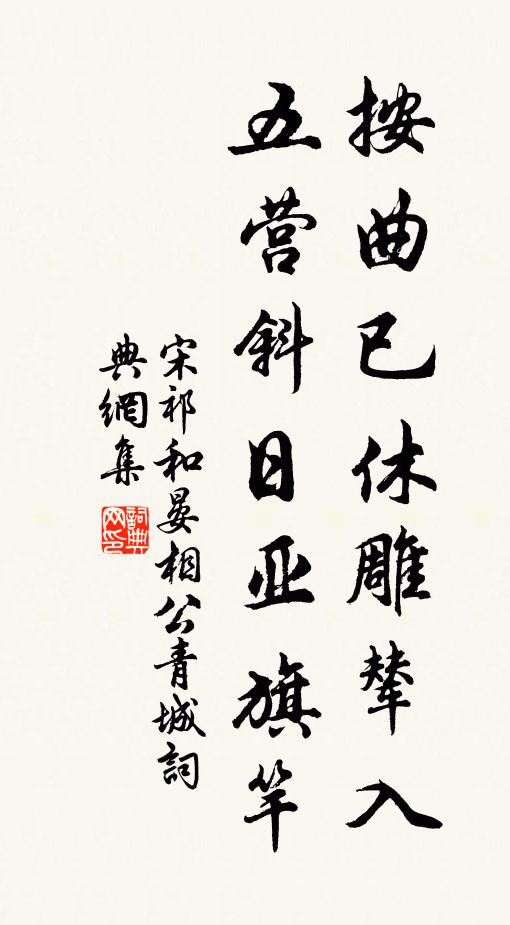 按曲已休雕辇入
五营斜日亚旗竿
宋祁和晏相公青城詞
典網集
詞典网印